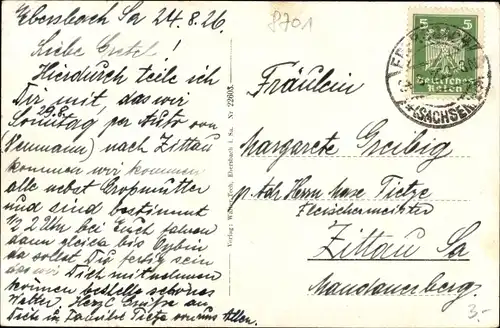 Ebersbach Sa 24.8.26.
Liebe Gretel!
Hierdurch teile ich
Dir mit, das wir
Sonntag, per Auto von
29.8.
(Neumann) nach Zittau
kommen wir kommen
alle nebst Großmutter
und sind bestimmt
1/2 2 Uhr bei Euch fahren
dann gleich bis Oybin
da sollst Du fertig sein
das wir Dich mitnehmen
können bestelle schönes
Wetter. Herzl Grüße an
Dich u Familie Tietze von uns Allen.
8701
5 5
Deutsches
Reich
(SACHSEN)
Fräulein
Margarete Greibig
p. Adr Herrn Max Tietze
Fleischermeister
Zittau Sa
Mandauerberg.
3-
Ebersbach i. Sa. Nr 22603.